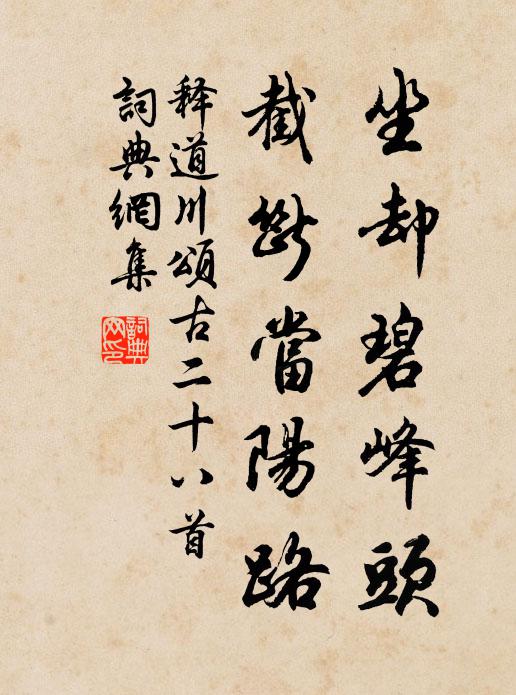 坐却碧峰頭
截斷當陽路
释道川頌古二十八首
詞典網集
詞典网印